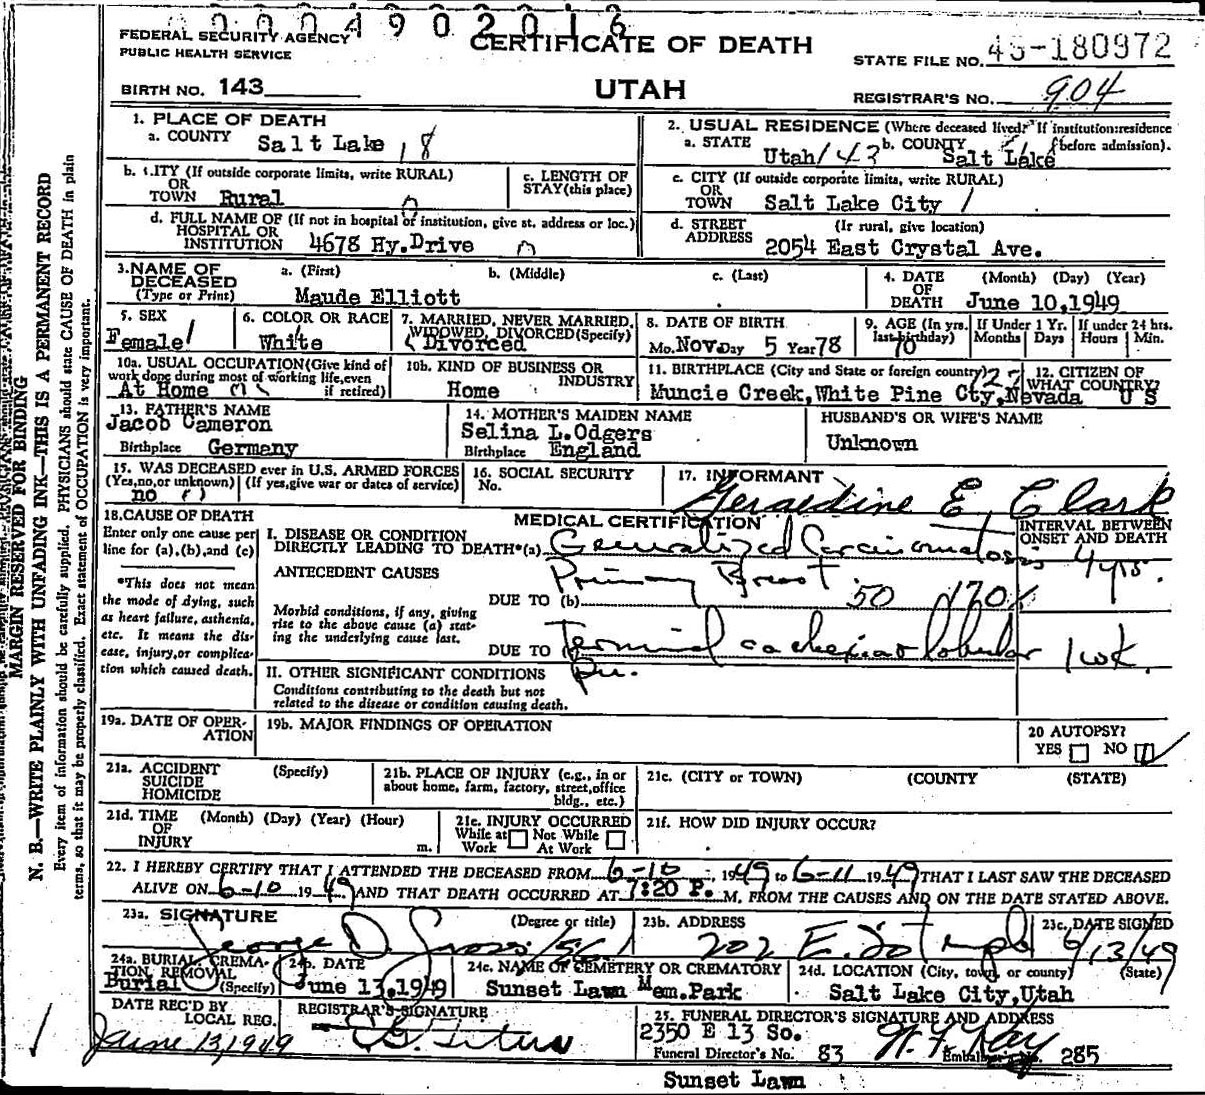 0004902016
FEDERAL SECURITY AGENCY
PUBLIC HEALTH SERVICE
CERTIFICATE OF DEATH
STATE FILE NO. 49-180972
BIRTH NO. 143
UTAH
REGISTRAR'S NO. 904
1. PLACE OF DEATH
a. COUNTY Salt Lake 18
2. USUAL RESIDENCE (Where deceased lived? If institution:residence before admission).
a. STATE Utah/ 43 b. COUNTY Salt Lake
b. CITY (If outside corporate limits, write RURAL)
OR
TOWN Rural
c. LENGTH OF
STAY (this place)
c. CITY (If outside corporate limits, write RURAL)
OR
TOWN Salt Lake City /
d. FULL NAME OF (If not in hospital or institution, give st. address or loc.)
HOSPITAL OR
INSTITUTION 4678 Hy.Drive
d. STREET (If rural, give location)
ADDRESS 2054 East Crystal Ave.
3. NAME OF
DECEASED
(Type or Print)
a. (First) b. (Middle) c. (Last)
Maude Elliott
4. DATE (Month) (Day) (Year)
OF
DEATH June 10,1949
5. SEX
Female/
6. COLOR OR RACE
White
7. MARRIED, NEVER MARRIED,
WIDOWED, DIVORCED(Specify)
Divorced
8. DATE OF BIRTH
Mo. Nov. Day 5 Year 78
9. AGE (In yrs. last birthday)
70
If Under 1 Yr.
Months Days
If under 24 hrs.
Hours Min.
10a. USUAL OCCUPATION(Give kind of
work done during most of working life,even
if retired)
At Home
10b. KIND OF BUSINESS OR
INDUSTRY
Home
11. BIRTHPLACE (City and State or foreign country)
Muncie Creek,White Pine Cty,Nevada
12. CITIZEN OF
WHAT COUNTRY?
U S
13. FATHER'S NAME
Jacob Cameron
Birthplace Germany
14. MOTHER'S MAIDEN NAME
Selina L.Odgers
Birthplace England
HUSBAND'S OR WIFE'S NAME
Unknown
15. WAS DECEASED ever in U.S. ARMED FORCES
(Yes,no,or unknown) (If yes,give war or dates of service)
no
16. SOCIAL SECURITY
No.
17. INFORMANT
Geraldine E. Clark
18.CAUSE OF DEATH
Enter only one cause per
line for (a),(b),and (c)
*This does not mean
the mode of dying, such
as heart failure, asthenia,
etc. It means the dis-
ease, injury,or complica-
tion which caused death.
MEDICAL CERTIFICATION
INTERVAL BETWEEN
ONSET AND DEATH
I. DISEASE OR CONDITION
DIRECTLY LEADING TO DEATH*(a) Generalized Carcinomatosis 4 yrs.
ANTECEDENT CAUSES
Morbid conditions, if any, giving
rise to the above cause (a) stat-
ing the underlying cause last.
DUE TO (b) Primary Breast 50 170/
DUE TO Terminal cachexia & lobular 1 wk.
Pn.
II. OTHER SIGNIFICANT CONDITIONS
Conditions contributing to the death but not
related to the disease or condition causing death.
19a. DATE OF OPER-
ATION
19b. MAJOR FINDINGS OF OPERATION
20 AUTOPSY?
YES NO
21a. ACCIDENT (Specify)
SUICIDE
HOMICIDE
21b. PLACE OF INJURY (e.g., in or
about home, farm, factory, street,office
bldg., etc.)
21c. (CITY or TOWN) (COUNTY (STATE)
21d. TIME (Month) (Day) (Year) (Hour)
OF
INJURY m.
21e. INJURY OCCURRED
While at Not While
Work At Work
21f. HOW DID INJURY OCCUR?
22. I HEREBY CERTIFY THAT I ATTENDED THE DECEASED FROM 6-10, 1949 to 6-11 1949 THAT I LAST SAW THE DECEASED
ALIVE ON 6-10 1949 AND THAT DEATH OCCURRED AT 7:20 P. M. FROM THE CAUSES AND ON THE DATE STATED ABOVE.
23a. SIGNATURE (Degree or title)
George D.
23b. ADDRESS
202 E. So Temple
23c. DATE SIGNED
6/13/49
24a. BURIAL, CREMA-
TION, REMOVAL
Burial (Specify)
24b. DATE
June 13,1949
24c. NAME OF CEMETERY OR CREMATORY
Sunset Lawn Mem.Park
24d. LOCATION (City, town, or county) (State)
Salt Lake City,Utah
DATE REC'D BY
LOCAL REG.
June 13,1949
REGISTRAR'S SIGNATURE
25. FUNERAL DIRECTOR'S SIGNATURE AND ADDRESS
2350 E 13 So.
Funeral Director's No. 83 Embalmer's No. 285
Sunset Lawn
MARGIN RESERVED FOR BINDING
N. B.—WRITE PLAINLY WITH UNFADING INK—THIS IS A PERMANENT RECORD
Every item of information should be carefully supplied. PHYSICIANS should state CAUSE OF DEATH in plain
terms, so that it may be properly classified. Exact statement of OCCUPATION is very important.